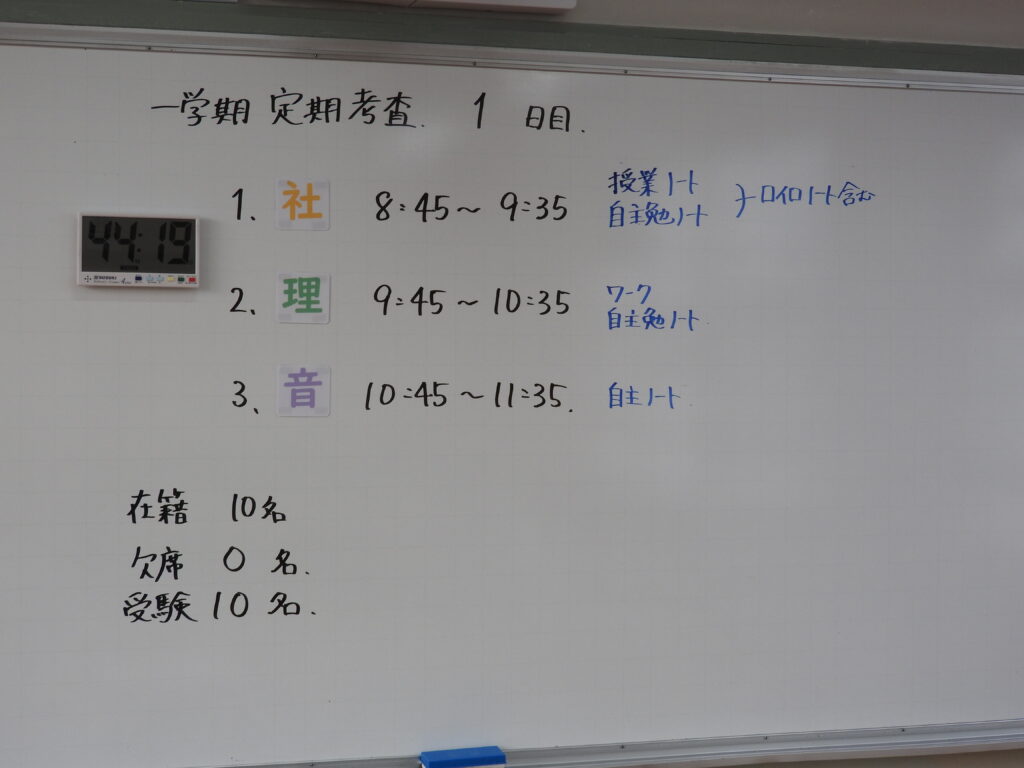 一学期 定期考査. 1 日目.
44:19
1、 社 8:45～9:35 授業ノート
自主勉ノート }ロイロノート含む
2、 理 9:45～10:35 ワーク
自主勉ノート
3、 音 10:45～11:35. 自主ノート
在籍 10名
欠席 0名.
受験 10名.